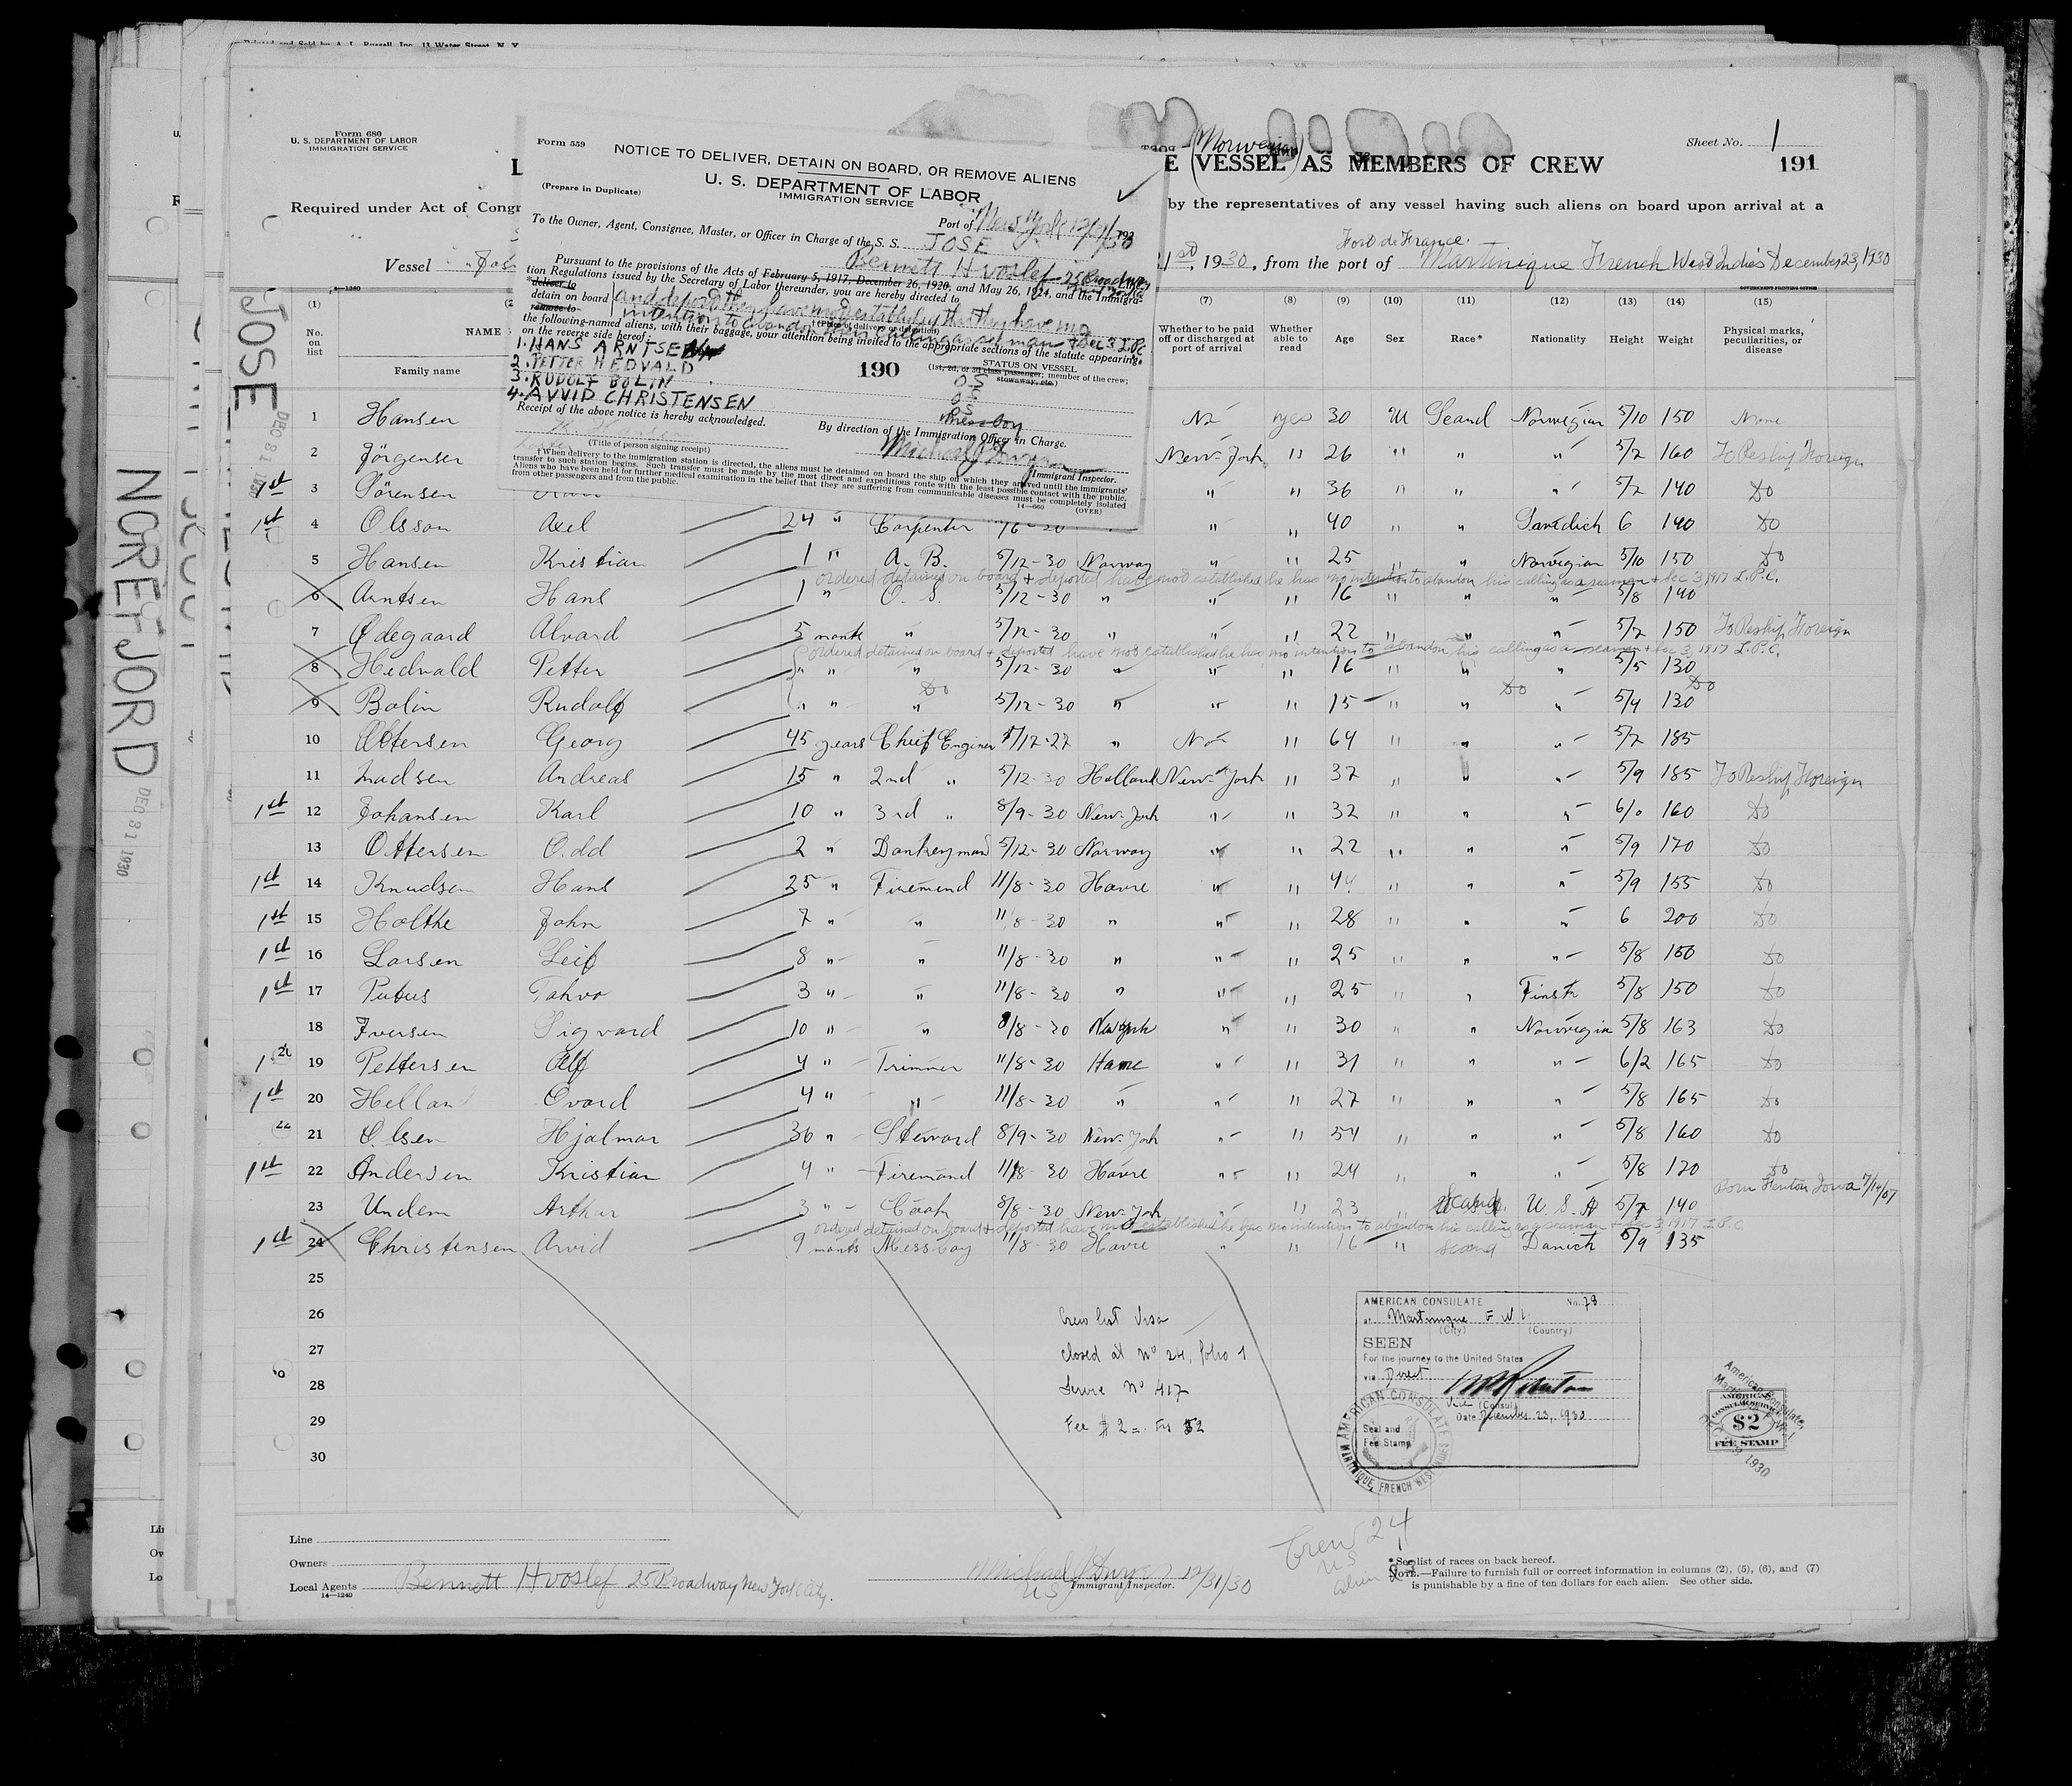 Printed and Sold by A. L. Russell, Inc., 13 Water Street, N. Y.
Form 680
U. S. DEPARTMENT OF LABOR
IMMIGRATION SERVICE
(Norwegian)
E (VESSEL) AS MEMBERS OF CREW
Sheet No. 1
191
Required under Act of Congr
by the representatives of any vessel having such aliens on board upon arrival at a
Vessel
1st, 1930, from the port of Fort de France. Martinique French West Indies December 23, 1930
Form 559
NOTICE TO DELIVER, DETAIN ON BOARD, OR REMOVE ALIENS
(Prepare in Duplicate)
U. S. DEPARTMENT OF LABOR
IMMIGRATION SERVICE
Port of New York 12/31/30
To the Owner, Agent, Consignee, Master, or Officer in Charge of the S. S. JOSE
Bennett Hvoslef 25 Broadway New York
Pursuant to the provisions of the Acts of February 5, 1917, December 26, 1920, and May 26, 1924, and the Immigra-
tion Regulations issued by the Secretary of Labor thereunder, you are hereby directed to
*deliver to
detain on board
remove to
and deport they have not established that they have no
intention to abandon their calling as seaman + Sec 3 L.P.C.
†(Place of delivery or detention)
the following-named aliens, with their baggage, your attention being invited to the appropriate sections of the statute appearing
on the reverse side hereof.
1. HANS ARNTSEN
2. PETTER HEDVALD
3. RUDOLF BOLIN
4. AVVID CHRISTENSEN
190
STATUS ON VESSEL
(1st, 2d, or 3d class passenger; member of the crew;
stowaway, etc.)
O S
O S
O S
Mess boy
Receipt of the above notice is hereby acknowledged.
By direction of the Immigration Officer in Charge.
(Title of person signing receipt)
Immigrant Inspector.
†When delivery to the immigration station is directed, the aliens must be detained on board the ship on which they arrived until the immigrants'
transfer to such station begins. Such transfer must be made by the most direct and expeditious route with the least possible contact with the public.
Aliens who have been held for further medical examination in the belief that they are suffering from communicable diseases must be completely isolated
from other passengers and from the public.
14—660
(OVER)
JOSE
DEC 31 1930
NOREFJORD
DEC 31 1930
14—1240
(1) (7) (8) (9) (10) (11) (12) (13) (14) (15)
No. on list
NAME
Family name
Whether to be paid off or discharged at port of arrival
Whether able to read
Age
Sex
Race*
Nationality
Height
Weight
Physical marks, peculiarities, or disease
1 Hansen No yes 30 M Scand Norwegian 5/10 150 None
2 Jörgensen New-York " 26 " " " 5/7 160 To Reship Foreign
1st 3 Sörensen " " 36 " " " 5/7 140 Do
1st 4 Olsson Axel 24 " Carpenter " " 40 " " Swedich 6 140 Do
5 Hansen Kristian 1 " A. B. 5/12-30 Norway " " 25 " " Norwegian 5/10 150 Do
ordered detained on board + deported have not established he has no intention to abandon his calling as a seaman + Sec 3, 1917 L.P.C.
6 Arntsen Hans 1 " O. S. 5/12-30 " " " 16 " " " 5/8 140
7 Ødegaard Alvard 5 month " 5/12-30 " " " 22 " " " 5/7 150 To Reship Foreign
ordered detained on board + deported have not established he has no intention to abandon his calling as a seaman + Sec 3, 1917 L.P.C.
8 Hedvald Petter " " " 5/12-30 " " " 16 " " " 5/5 130
Do Do Do
9 Bolin Rudolf " " " 5/12-30 " " " 15 " " " 5/4 130
10 Ottersen Georg 45 years Chief Enginer 5/12-27 " No " 64 " " " 5/7 185
11 Madsen Andreas 15 " 2nd " 5/12-30 Holland New-York " 37 " " " 5/9 185 To Reship Foreign
1st 12 Johansen Karl 10 " 3rd " 8/9-30 New-York " " 32 " " " 6/0 160 Do
13 Ottersen Odd 2 " Donkeyman 5/12-30 Norway " " 22 " " " 5/9 170 Do
1st 14 Knudsen Hans 25 " Firemand 11/8-30 Havre " " 44 " " " 5/9 155 Do
1st 15 Holthe John 7 " " 11/8-30 " " " 28 " " " 6 200 Do
1st 16 Larsen Leif 8 " " 11/8-30 " " " 25 " " " 5/8 150 Do
1st 17 Putus Tahvo 3 " " 11/8-30 " " " 25 " " 5/8 150 Do
18 Iversen Sigvard 10 " " 8/8-30 New York " " 30 " " Norvegian 5/8 163 Do
1st 19 Pettersen Alf 4 " Trimmer 11/8-30 Havre " " 31 " " " 6/2 165 Do
1st 20 Hellan Ovard 4 " " 11/8-30 " " " 27 " " " 5/8 165 Do
21 Olsen Hjalmar 36 " Steward 8/9-30 New-York " " 54 " " " 5/8 160 Do
1st 22 Andersen Kristian 4 " Firemand 11/8-30 Havre " " 24 " " " 5/8 170 Do
Born Fenton Iowa 7/14/07
23 Undem Arthur 3 " Cook 8/8-30 New-York " " 23 " Scand U. S. A 5/7 140
ordered detained on board + deported have not established he has no intention to abandon his calling as a seaman + Sec 3, 1917 L.P.C.
1st 24 Christensen Arvid 9 months Messboy 11/8-30 Havre " " 16 " Scand Danich 5/9 135
25
26
27
28
29
30
Crew list Visa
closed at No 24, folio 1
Service No 417
Fee $2 = Frs 52
AMERICAN CONSULATE No. 78
at Martinique F W I
(City) (Country)
SEEN
For the journey to the United States
via Direct
Vice (Consul)
Date December 23, 1930
Seal and
Fee Stamp
AMERICAN CONSULATE
MARTINIQUE, FRENCH WEST INDIES
American Consulate,
AMERICAN
CONSULAR SERVICE
$2
FEE STAMP
1930
Line
Owners
Local Agents Bennett Hvoslef 25 Broadway New York City.
14—1240
12/31/30
US Immigrant Inspector.
Crew 24
US 1
alien 23
*See list of races on back hereof.
NOTE.—Failure to furnish full or correct information in columns (2), (5), (6), and (7)
is punishable by a fine of ten dollars for each alien. See other side.